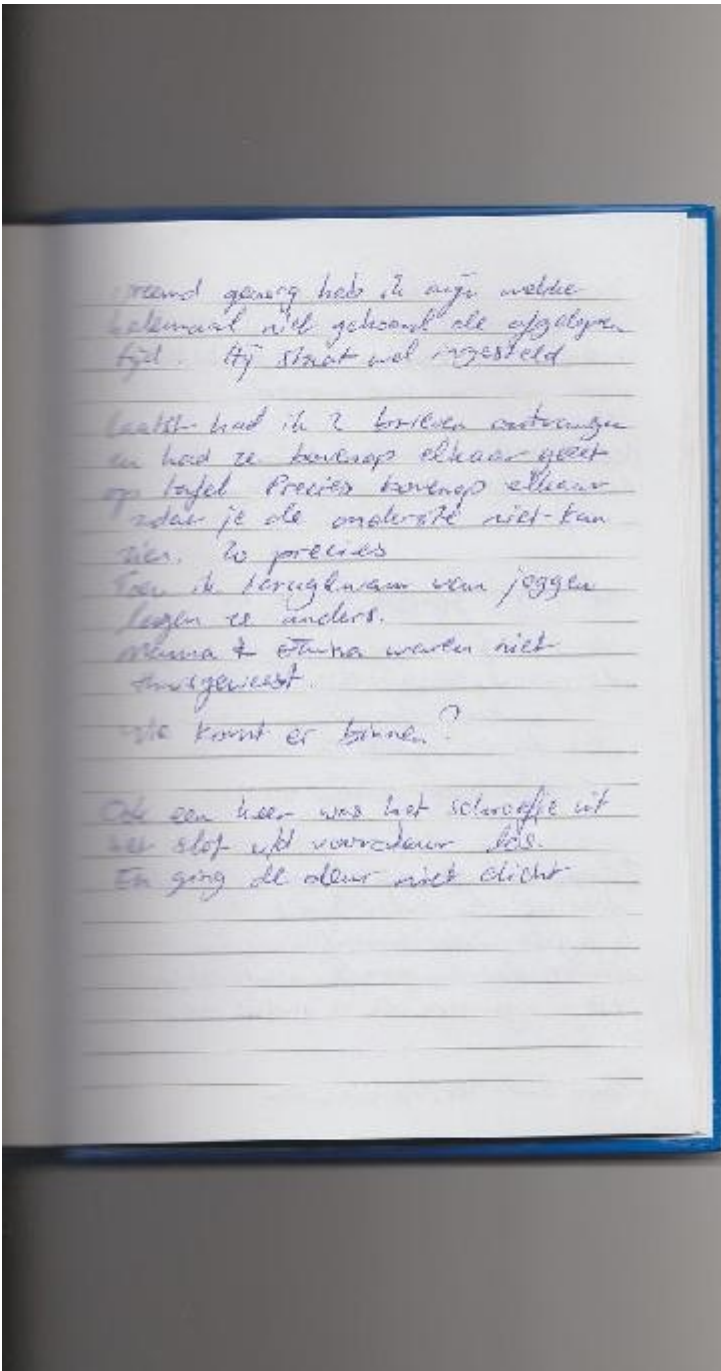 vreemd genoeg heb ik mijn wekker
helemaal niet gehoord de afgelopen
tijd. Hij staat wel ingesteld
Laatst had ik 2 brieven ontvangen
en had ze bovenop elkaar gezet
op tafel Precies bovenop elkaar
zodat je de onderste niet kan
zien. Zo precies
Toen ik terugkwam van joggen
lagen ze anders.
Mama & waren niet
thuisgeweest.
Wie komt er binnen?
Ook een keer was het schroefje uit
het slot v/d voordeur los.
En ging de deur niet dicht